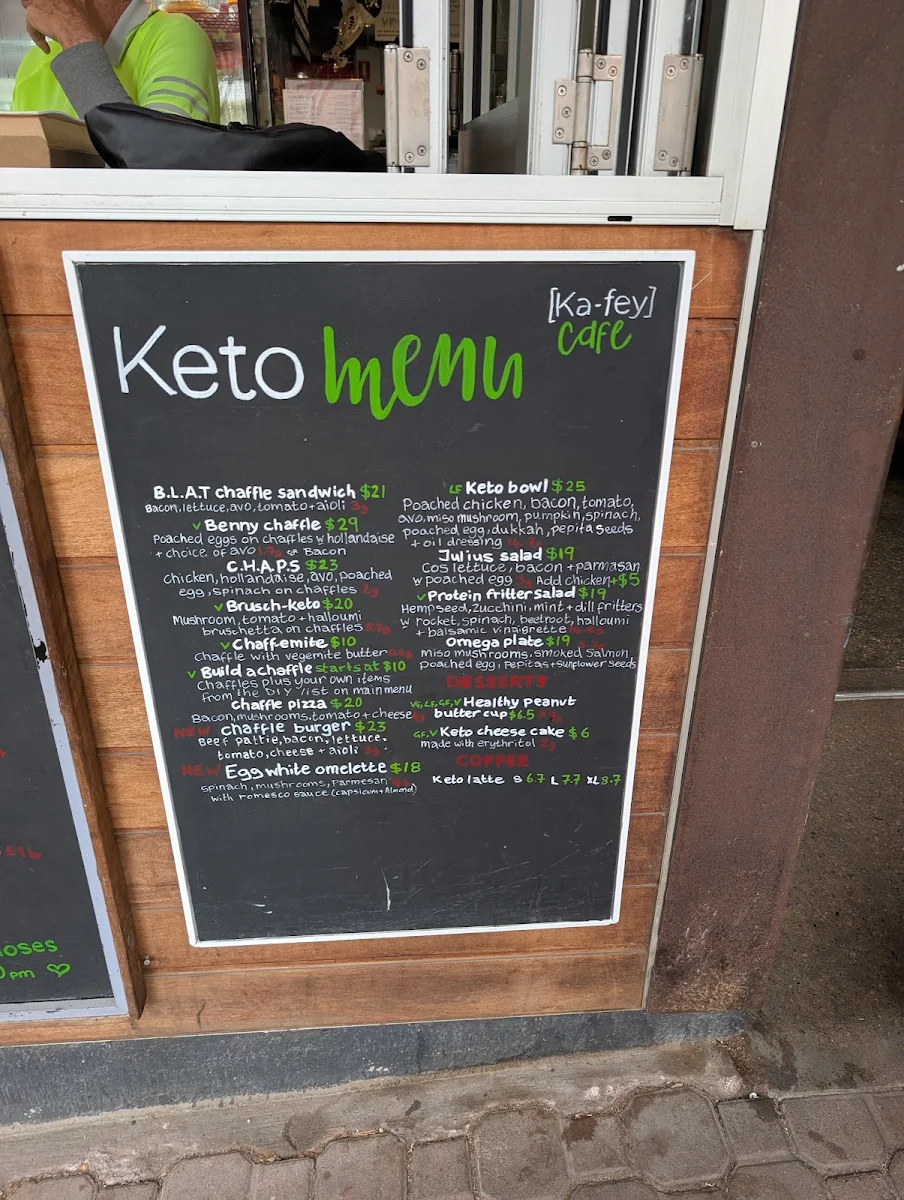 [Ka-fey]
cafe
Keto menu
B.L.A.T chaffle sandwich $21
Bacon, lettuce, avo, tomato + aioli 3g
v Benny chaffle $29
Poached eggs on chaffles w hollandaise
+ choice of avo 1.7g or Bacon
C.H.A.P.S $23
chicken, hollandaise, avo, poached
egg, spinach on chaffles 2g
v Brusch-keto $20
Mushroom, tomato + halloumi
bruschetta on chaffles 5.2g
v Chaff-emite $10
Chaffle with vegemite butter
v Build a chaffle starts at $10
Chaffles plus your own items
from the DIY list on main menu
Chaffle pizza $20
Bacon, mushrooms, tomato + cheese
NEW chaffle burger $23
Beef pattie, bacon, lettuce,
tomato, cheese + aioli 3g
NEW Egg white omelette $18
spinach, mushrooms, Parmesan
with romesco sauce (capsicum + Almond)
LF Keto bowl $25
Poached chicken, bacon, tomato,
avo, miso mushroom, pumpkin, spinach,
poached egg, dukkah, pepita seeds
+ oil dressing
Julius salad $19
Cos lettuce, bacon + parmasan
w poached egg 3g Add chicken +$5
v Protein fritter salad $19
Hempseed, zucchini, mint + dill fritters
w rocket, spinach, beetroot, halloumi
+ balsamic vinaigrette
Omega plate $19
miso mushrooms, smoked salmon,
poached egg, pepitas + sunflower seeds
DESSERTS
VG, LF, GF, V Healthy Peanut
butter cup $6.5
GF, V Keto cheese cake $6
made with erythritol 2g
COFFEE
Keto latte S 6.7 L 7.7 XL 8.7
$1
loses
pm